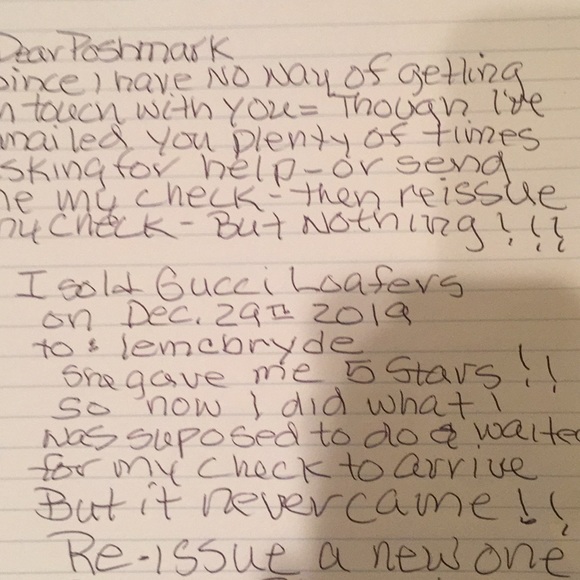 Dear Poshmark
Since I have NO way of getting
in touch with you = Though I've
emailed you plenty of times
asking for help - or send
me my check - then reissue
my check - But Nothing!!!
I sold Gucci Loafers
on Dec. 29th 2019
to: lemcbryde
she gave me 5 Stars!!
so now I did what I
was suposed to do & waited
for my check to arrive
But it never came!!
Re-issue a new one